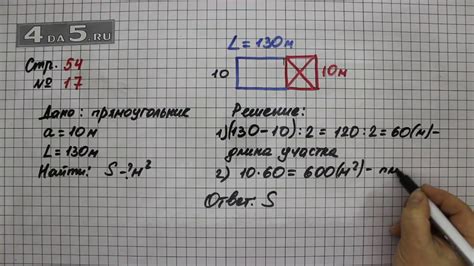 4 DA 5.RU
Стр. 54
№ 17
L = 130м
10
10м
Дано: прямоугольник
a = 10м
L = 130м
Найти: S - ? м²
Решение:
1) (130-10) : 2 = 120 : 2 = 60(м)-
длина участка
2) 10·60 = 600(м²)- пл
Ответ: S